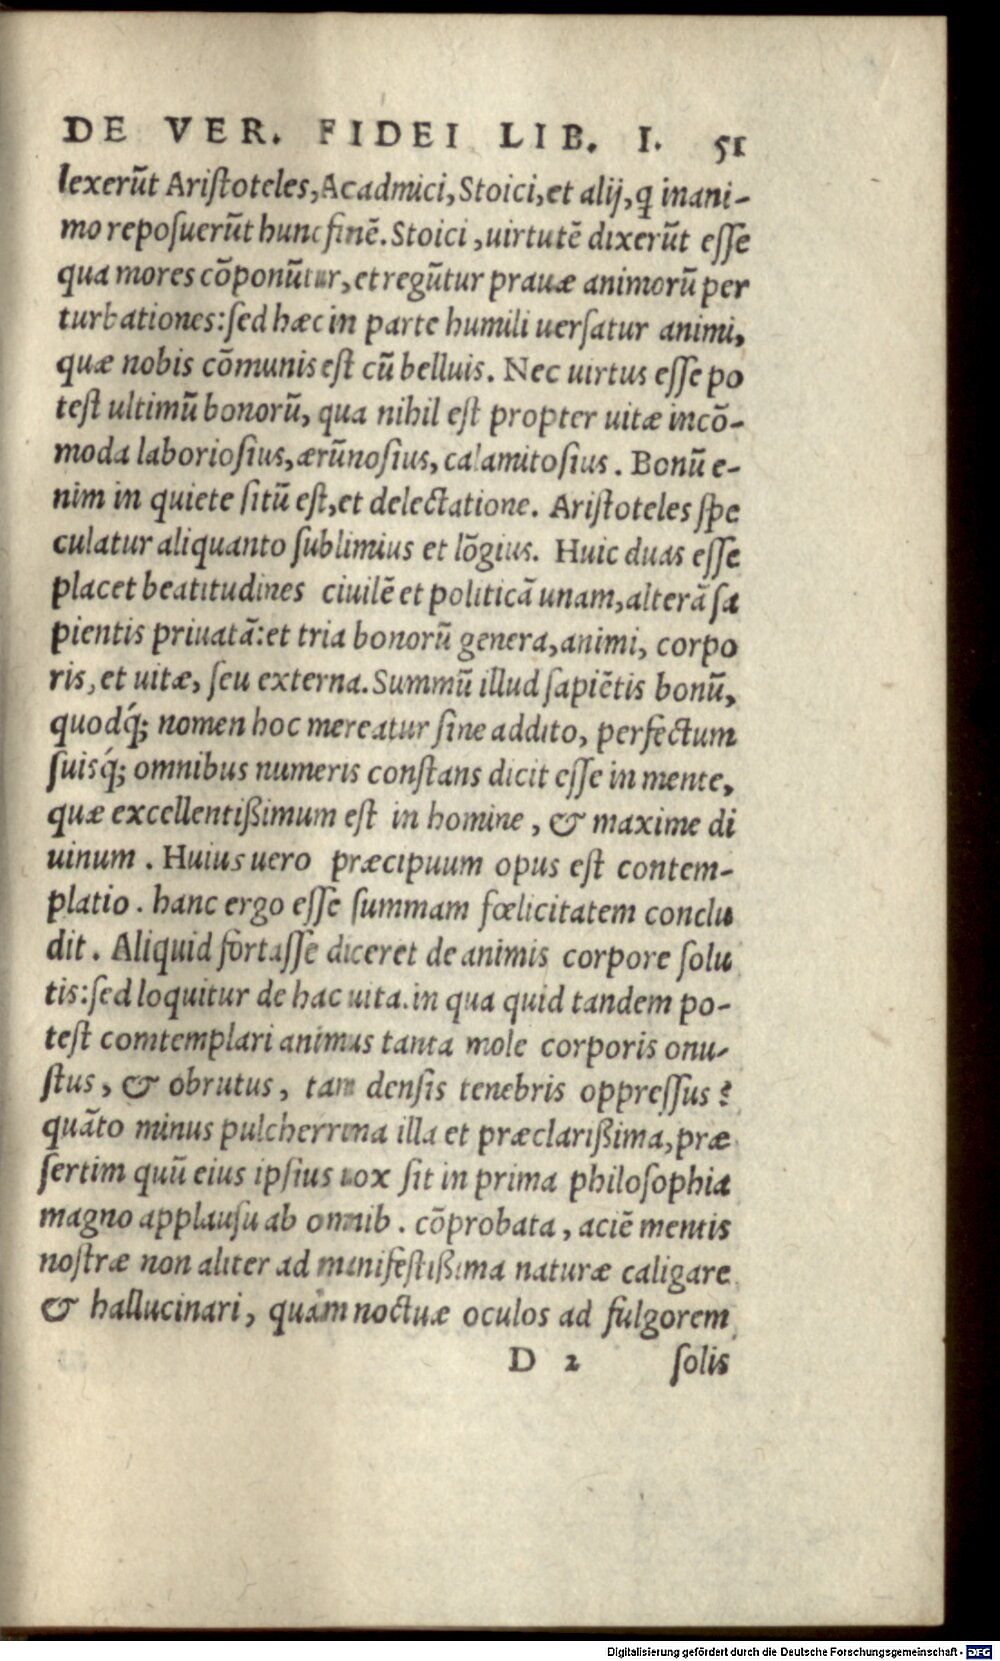 DE VER. FIDEI LIB. I. 51
lexerūt Ariſtoteles, Acadmici, Stoici, et alij, q̃ in ani-
mo repoſuerūt hunc finē. Stoici, uirtutē dixerūt eſſe
qua mores cōponūtur, et regūtur prauæ animorū per
turbationes: ſed hæc in parte humili uerſatur animi,
quæ nobis cōmunis eſt cū belluis. Nec uirtus eſſe po
teſt ultimū bonorū, qua nihil eſt propter uitæ incō-
moda laborioſius, ærūnoſius, calamitoſius. Bonū e-
nim in quiete ſitū eſt, et delectatione. Ariſtoteles ſpe
culatur aliquanto ſublimius et lōgius. Huic duas eſſe
placet beatitudines ciuilē et politicā unam, alterā ſa
pientis priuatā: et tria bonorū genera, animi, corpo
ris, et uitæ, ſeu externa. Summū illud ſapiētis bonū,
quodq́; nomen hoc mereatur ſine addito, perfectum
ſuisq́; omnibus numeris conſtans dicit eſſe in mente,
quæ excellentißimum eſt in homine, & maxime di
uinum. Huius uero præcipuum opus eſt contem-
platio. hanc ergo eſſe ſummam fœlicitatem conclu
dit. Aliquid fortaſſe diceret de animis corpore ſolu
tis: ſed loquitur de hac uita. in qua quid tandem po-
teſt comtemplari animus tanta mole corporis onu-
ſtus, & obrutus, tam denſis tenebris oppreſſus?
quāto minus pulcherrima illa et præclarißima, præ
ſertim quū eius ipſius uox ſit in prima philoſophia
magno applauſu ab omnib. cōprobata, aciē mentis
noſtræ non aliter ad manifeſtißima naturæ caligare
& hallucinari, quàm noctuæ oculos ad fulgorem
D 2 ſolis
Digitalisierung gefördert durch die Deutsche Forschungsgemeinschaft - DFG